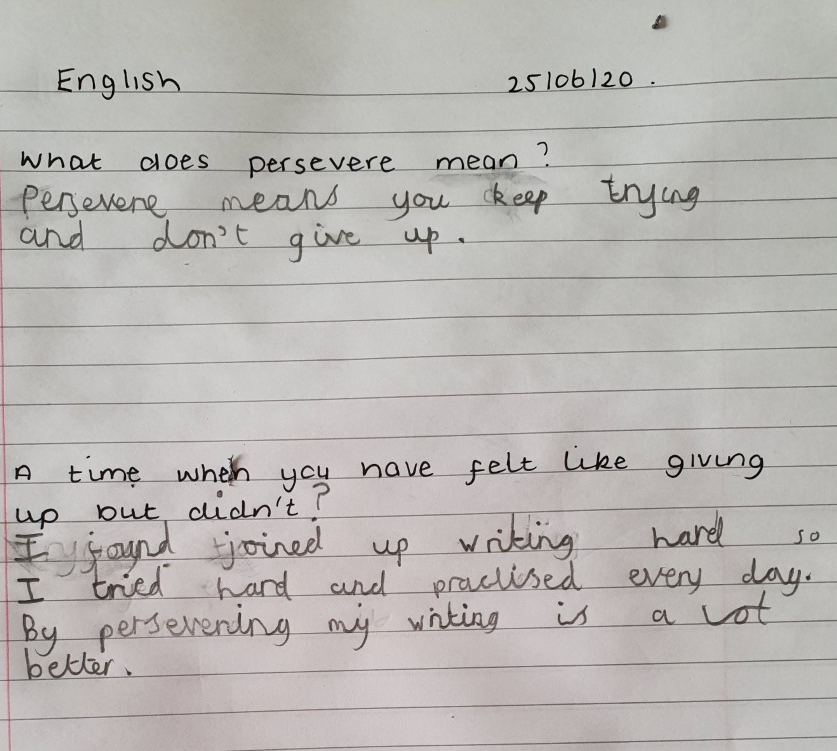 English 25/06/20.
What does persevere mean?
Persevere means you keep trying
and don't give up.
A time when you have felt like giving
up but didn't?
I found joined up writing hard so
I tried hard and practised every day.
By persevering my writing is a lot
better.